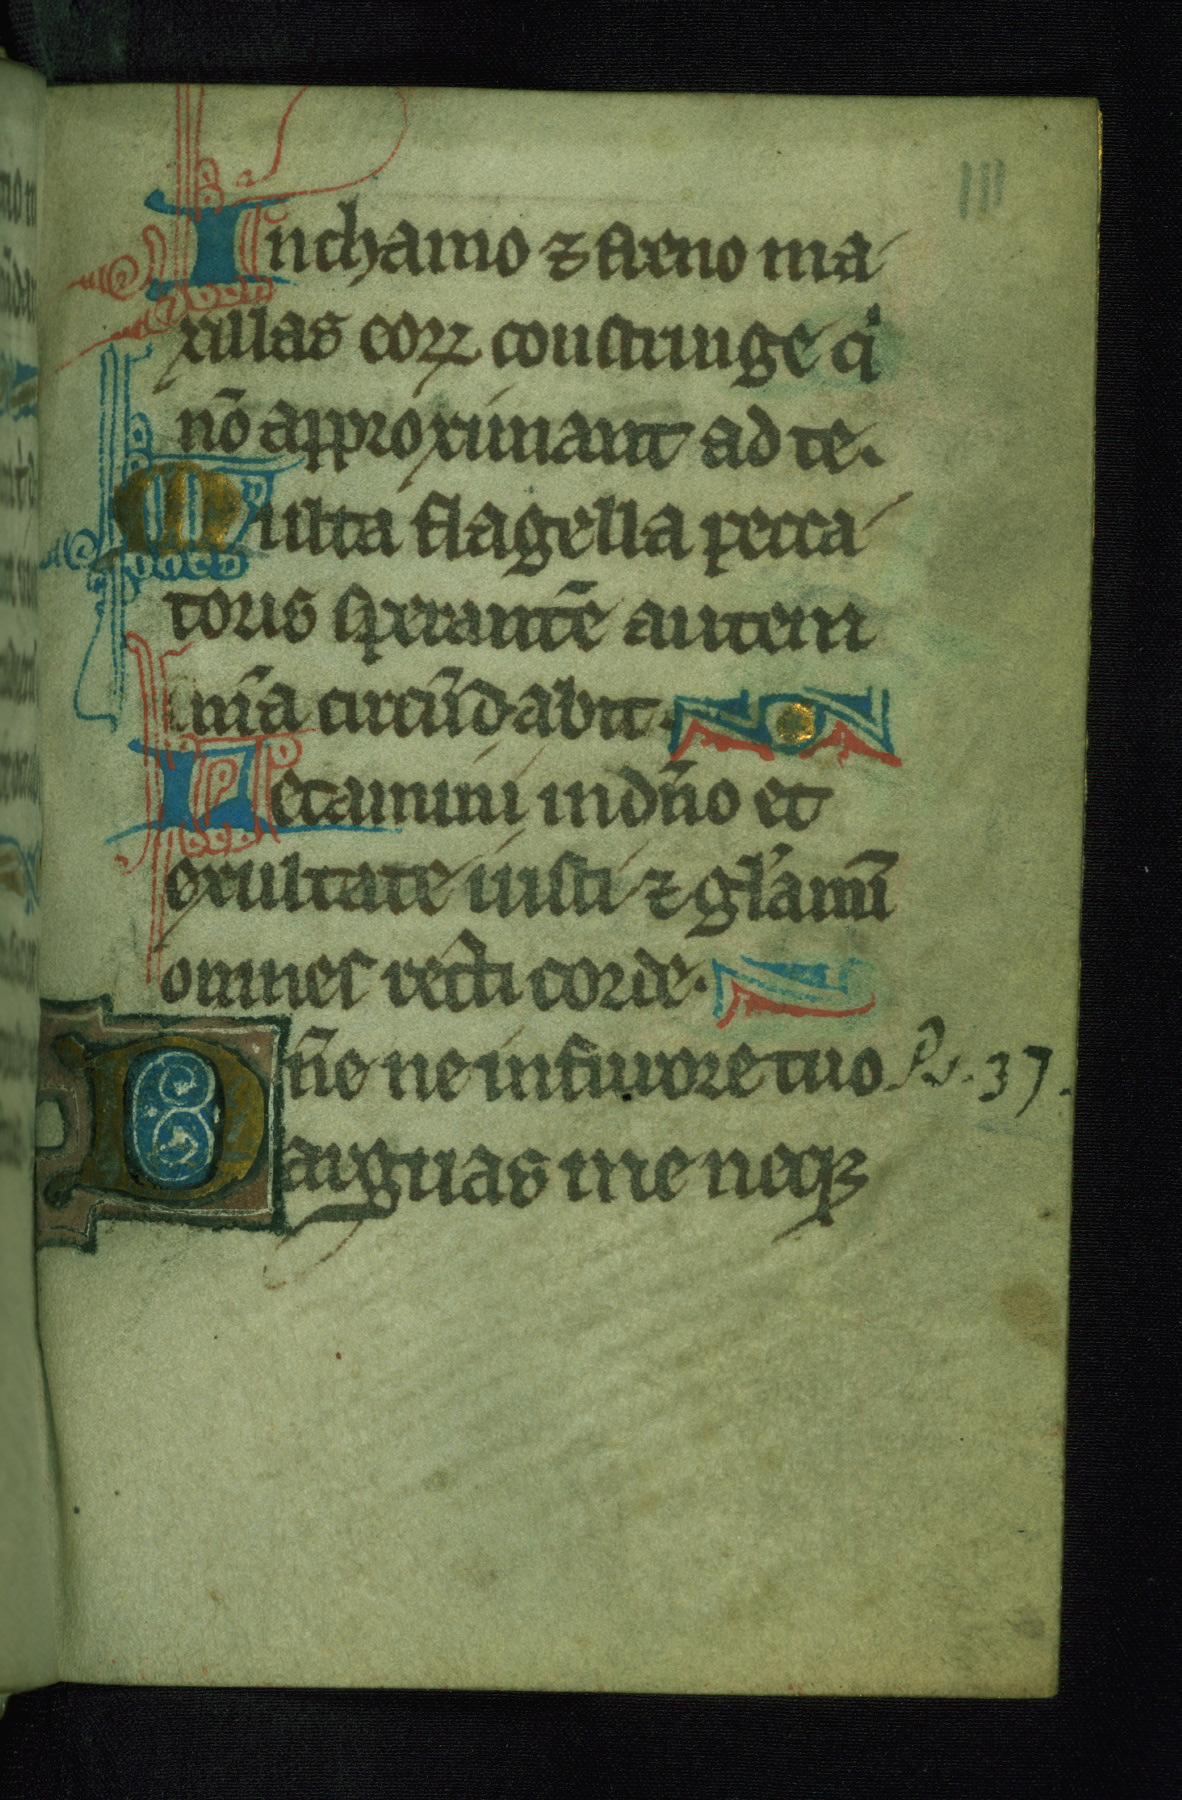 111
In chamo ⁊ freno ma
xillas eoꝝ constringe qͥ
nō approximant ad te.
Multa flagella pecca
toris sperantē autem
mīa circūdabit.
Letamini in dn̄o et
exultate iusti ⁊ gl̓amī
omnes recti corde.
Dn̄e ne in furore tuo Ps. 37.
arguas me neqꝫ